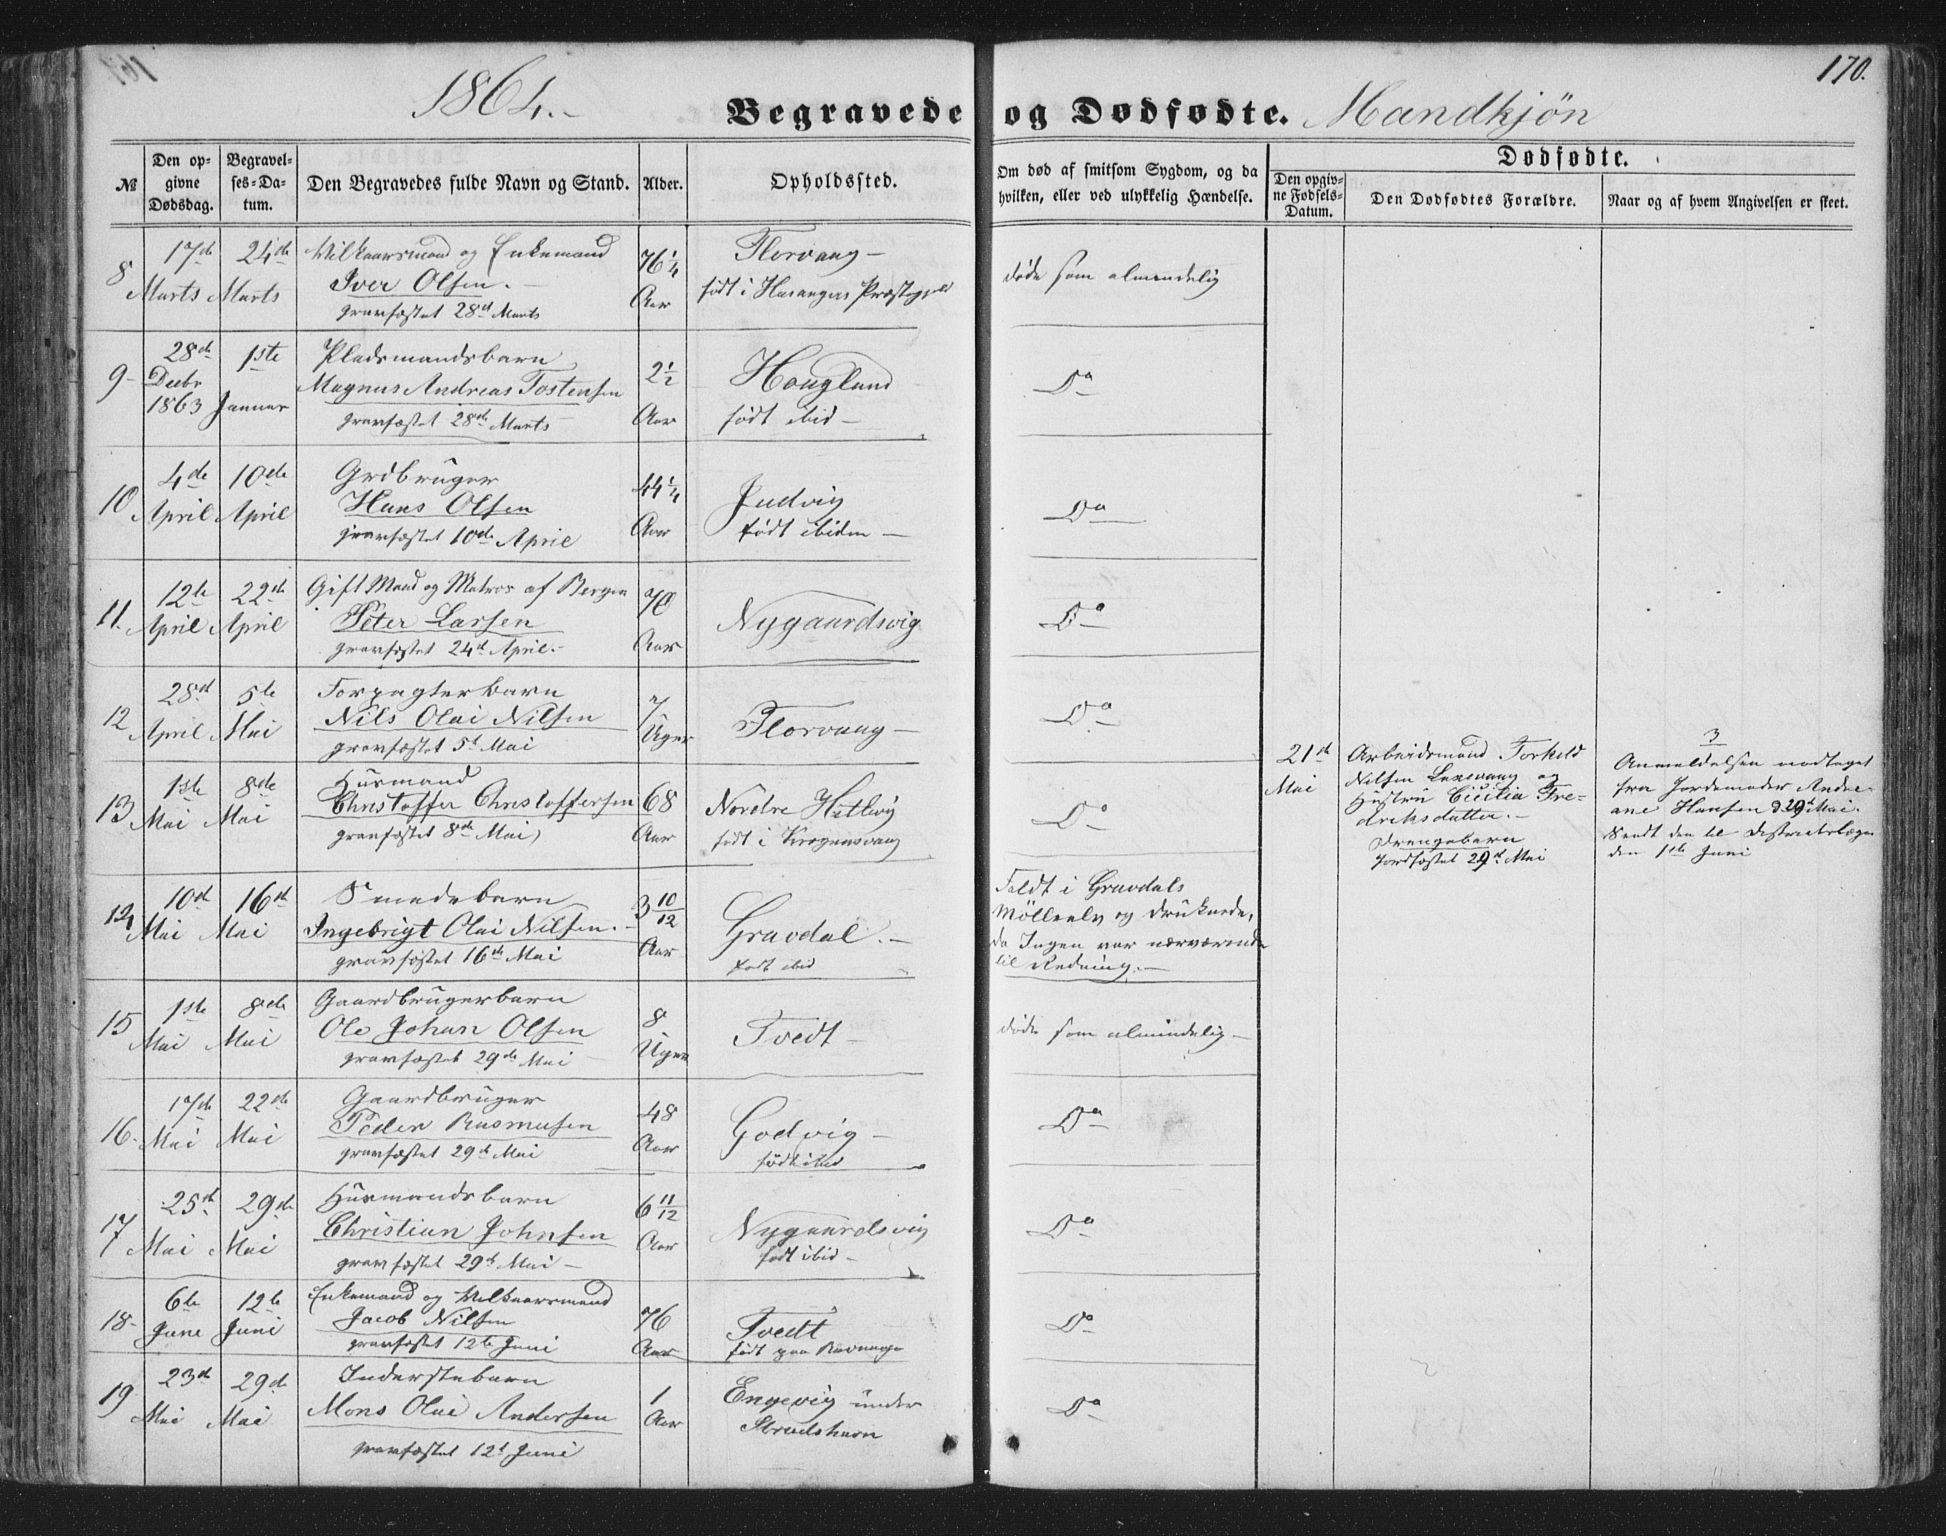 1864.
170.
Begravede og Dødfødte. Mandkjøn
№
Den opgivne Dødsdag.
Begravelses-Datum.
Den Begravedes fulde Navn og Stand.
Alder.
Opholdssted.
Om død af smitsom Sygdom, og da hvilken, eller ved ulykkelig Hændelse.
Dødfødte.
Den opgivne Fødsels-Datum.
Den Dødfødtes Forældre.
Naar og af hvem Angivelsen er skeet.
8
17de Marts
24de Marts
Vilkaarsmand og Enkemand
Iver Olsen.
gravfæstet 28de Marts
76 1/4 Aar
Florvaag
født i Præstegjeld
døde som almindelig
9
28de Decbr 1863
1ste Januar
Pladsmandsbarn
Magnus Andreas Tostensen
gravfæstet 28de Marts
2 1/2 Aar
Hougland
født ibid
Do
10
4de April
10de April
Grdbruger
Hans Olsen
gravfæstet 10de April
44 1/4 Aar
Judvig
født ibidem
Do
11.
12te April
22de April
Gift Mand og Matros af Bergen
Peter Larsen
gravfæstet 24de April.
70 Aar
Nygaardsvig
Do
12
28de April
5te Mai
Forpagterbarn
Nils Olai Nilsen
gravfæstet 5te Mai
7 Uger
Florvaag
Do
13
1ste Mai
8de Mai
Huusmand
Christoffer Christoffersen
gravfæstet 8de Mai
68 Aar
Nordre
født i
Do
21de Mai
Arbeidsmand Torkild
Nilsen og
Hustru Cicilia Fredriksdatter.
Drengebarn
Jordfæstet 29de Mai
3
Anmeldelsen modtaget
fra Jordemoder Andreane Hansen d. 29de Mai.
Sendt den til Districtslægen
den 1ste Juni
14
10de Mai
16de Mai
Smedebarn
Ingebrigt Olai Nilsen.
gravfæstet 16de Mai
3 10/12 Aar
Gravdal.
født ibid
Faldt i Gravdals
Mølleelv og druknede,
da Ingen var nærværende
til Redning.
15
1ste Mai
8de Mai
Gaardbrugerbarn
Ole Johan Olsen
gravfæstet 29de Mai
8 Uger
Tvedt
døde som almindelig
16.
17de Mai
22de Mai
Gaardbruger
Peder Rasmusen
gravfæstet 29de Mai
48 Aar
Godvig
født ibid
Do
17
25de Mai
29de Mai
Huusmandsbarn
Christian Johnsen
gravfæstet 29de Mai
6 11/12 Aar
Nygaardsvig
født ibid
Do
18
6te June
12te Juni
Enkemand og Vilkaarsmand
Jacob Nilsen
gravfæstet 12te Juni
76 Aar
Tvedt
født paa
Do
19
23de Mai
29de Mai
Inderstebarn
Mons Olai Andersen
gravfæstet 12te Juni
1 Aar
Engevig under
Strudshavn
Do